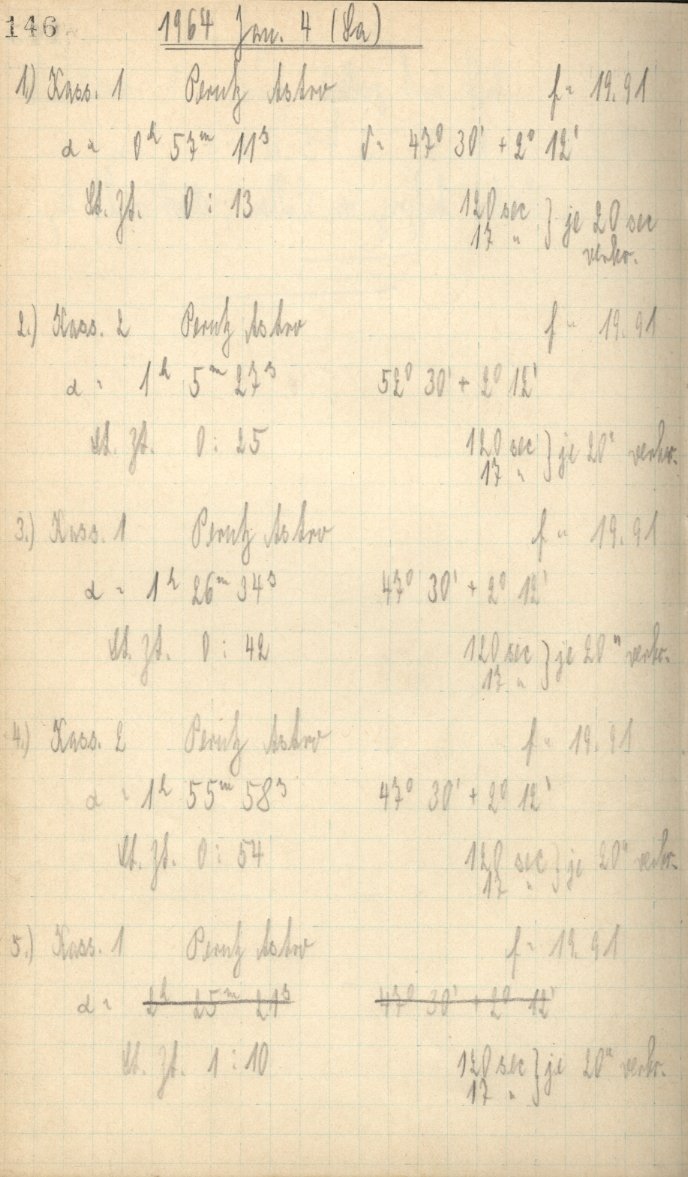 146 1964 Jan. 4 (Sa)
1.) Kass. 1 Perutz Astro f = 19.91
α = 0h 57m 11s δ = 47° 30' + 2° 12'
St. Zt. 0 : 13 120 sec } je 20 sec
17 " verkr.
2.) Kass. 2 Perutz Astro f = 19.91
α = 1h 5m 27s 52° 30' + 2° 12'
St. Zt. 0 : 25 120 sec } je 20" verkr.
17 "
3.) Kass. 1 Perutz Astro f = 19.91
α = 1h 26m 34s 47° 30' + 2° 12'
St. Zt. 0 : 42 120 sec } je 20" verkr.
17 "
4.) Kass. 2 Perutz Astro f = 19.91
α = 1h 55m 58s 47° 30' + 2° 12'
St. Zt. 0 : 54 120 sec } je 20" verkr.
17 "
5.) Kass. 1 Perutz Astro f = 19.91
α = 2h 25m 21s 47° 30' + 2° 12'
St. Zt. 1 : 10 120 sec } je 20" verkr.
17 "